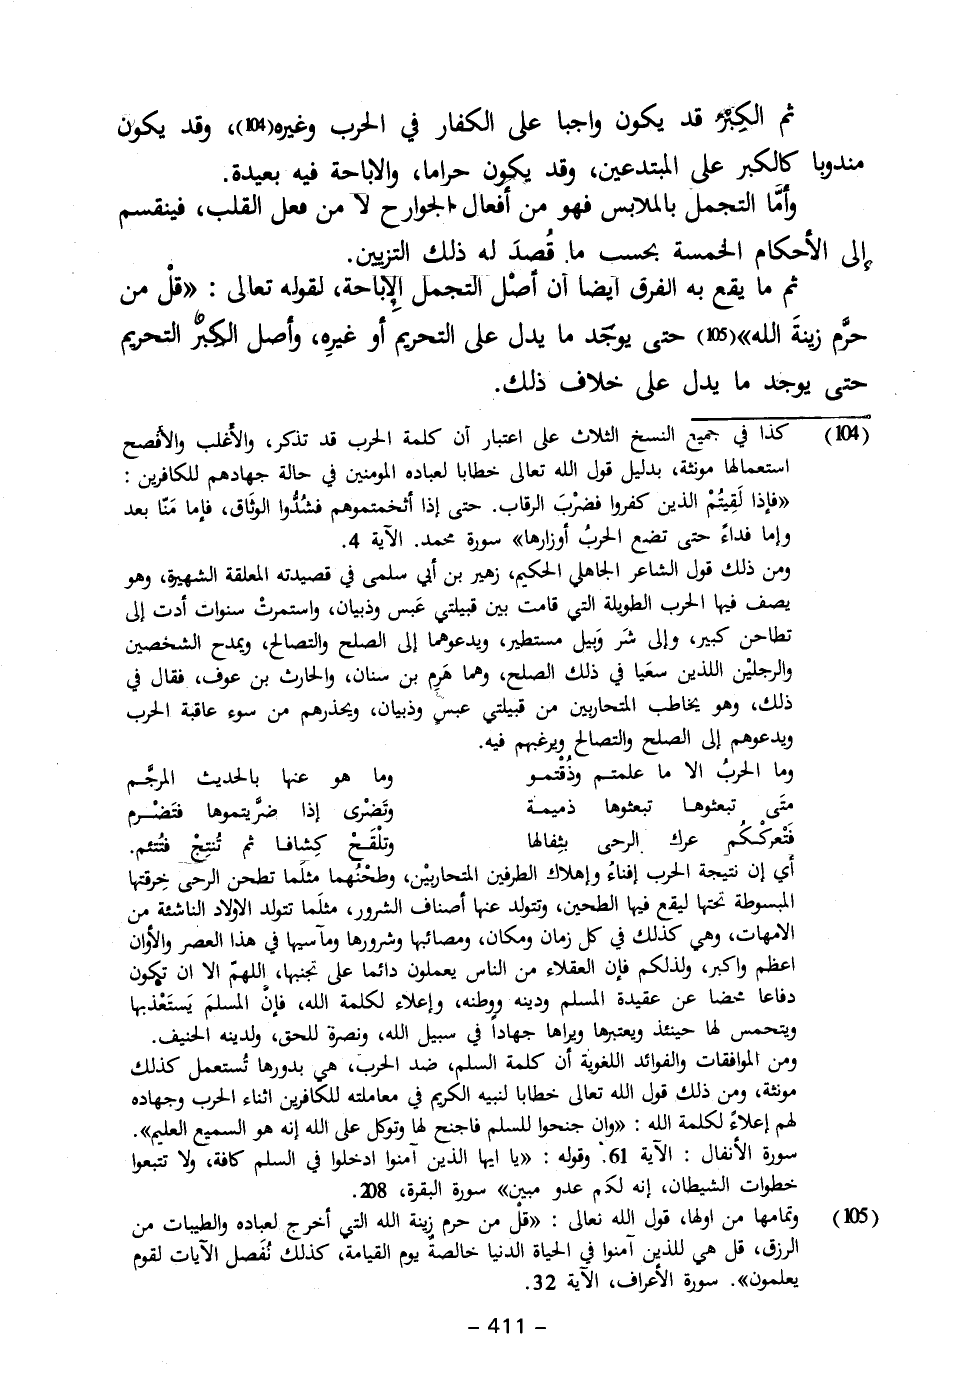 ثم الكِبْرُ قد يكون واجبا على الكفار في الحرب وغيره(104)، وقد يكون
مندوبا كالكبر على المبتدعين، وقد يكون حراما، والاباحة فيه بعيدة.
وأمَّا التجمل بالملابس فهو من أفعال الجوارح لا من فعل القلب، فينقسم
إلى الأحكام الخمسة بحسب ما قُصدَ له ذلك التزيين.
ثم ما يقع به الفرق أيضا أن أصْل التجمل الإِباحة، لقوله تعالى : «قلْ من
حرَّم زينةَ الله»(105) حتى يوجَد ما يدل على التحريم أو غيرِه، وأصل الكِبرُ التحريم
حتى يوجد ما يدل على خلاف ذلك.
(104) كذا في جميع النسخ الثلاث على اعتبار أن كلمة الحرب قد تذكر، والأغلب والأفصح
استعمالها مونثة، بدليل قول الله تعالى خطابا لعباده المومنين في حالة جهادهم للكافرين :
«فإذا لَقِيتُمْ الذين كفروا فضرْبَ الرقاب. حتى إذا أثخمتموهم فشُدُّوا الوثَاق، فإما مَنّا بعد
وإما فداءً حتى تضع الحربُ أوزارها» سورة محمد. الآية 4.
ومن ذلك قول الشاعر الجاهلي الحكيم، زهير بن أبي سلمى في قصيدته المعلقة الشهيرة، وهو
يصف فيها الحرب الطويلة التي قامت بين قبيلتي عَبس وذبيان، واستمرتْ سنوات أدت إلى
تطاحن كبير، وإلى شَر وَبيل مستطير، ويدعوهما إلى الصلح والتصالح، ويمدح الشخصين
والرجليْن اللذين سعَيا في ذلك الصلح، وهما هَرِم بن سنان، والحارث بن عوف، فقال في
ذلك، وهو يخاطب المتحاربين من قبيلتي عبسٍ وذبيان، ويحذرهم من سوء عاقبة الحرب
ويدعوهم إلى الصلح والتصالح ويرغبهم فيه.
وما الحربُ الا ما علمتـم وذُقْتمـو وما هو عنها بالحديث المرجَّـم
متَى تبعثوهـا تبعثوها ذميمـة وتَضْرى إذا ضرَّيتموها فتَضْـرم
فَتْعركْـكُم عرك الرحى بِثفالها وتلْقَـحْ كِشافـا ثم تُنتِجْ فتُتئم.
أي إن نتيجة الحرب إفناءُ وإهلاك الطرفين المتحاربيْن، وطحْنُهما مثلَما تطحن الرحى خِرقتها
المبسوطة تحتها ليقع فيها الطحين، وتتولد عنها أصناف الشرور، مثلَما تتولد الاولاد الناشئة من
الامهات، وهي كذلك في كل زمان ومكان، ومصائبها وشرورها ومآسيها في هذا العصر والأوان
اعظم واكبر، ولذلكم فإن العقلاء من الناس يعملون دائما على تجنبها، اللهمّ الا ان تكون
دفاعا محضا عن عقيدة المسلم ودينه ووطنه، وإعلاء لكلمة الله، فإنَّ المسلمَ يَستَعْذبها
ويتحمس لها حينئذ ويعتبرها ويراها جهاداً في سبيل الله، ونصرة للحق، ولدينه الحنيف.
ومن الموافقات والفوائد اللغوية أن كلمة السلم، ضد الحرب، هي بدورها تُستعمل كذلك
مونثة، ومن ذلك قول الله تعالى خطابا لنبيه الكريم في معاملته للكافرين اثناء الحرب وجهاده
لهم إعلاءً لكلمة الله : «وان جنحوا للسلم فاجنح لها وتوكل على الله إنه هو السميع العليم».
سورة الأنفال : الآية 61. وقوله : «يا ايها الذين آمنوا ادخلوا في السلم كافة، ولا تتبعوا
خطوات الشيطان، إنه لكم عدو مبين» سورة البقرة، 208.
(105) وتمامها من اولها، قول الله تعالى : «قلْ من حرم زينة الله التي أخرج لعباده والطيبات من
الرزق، قل هي للذين آمنوا في الحياة الدنيا خالصةٌ يوم القيامة، كذلك نُفَصل الآيات لقوم
يعلمون». سورة الأعراف، الآية 32.
- 411 -